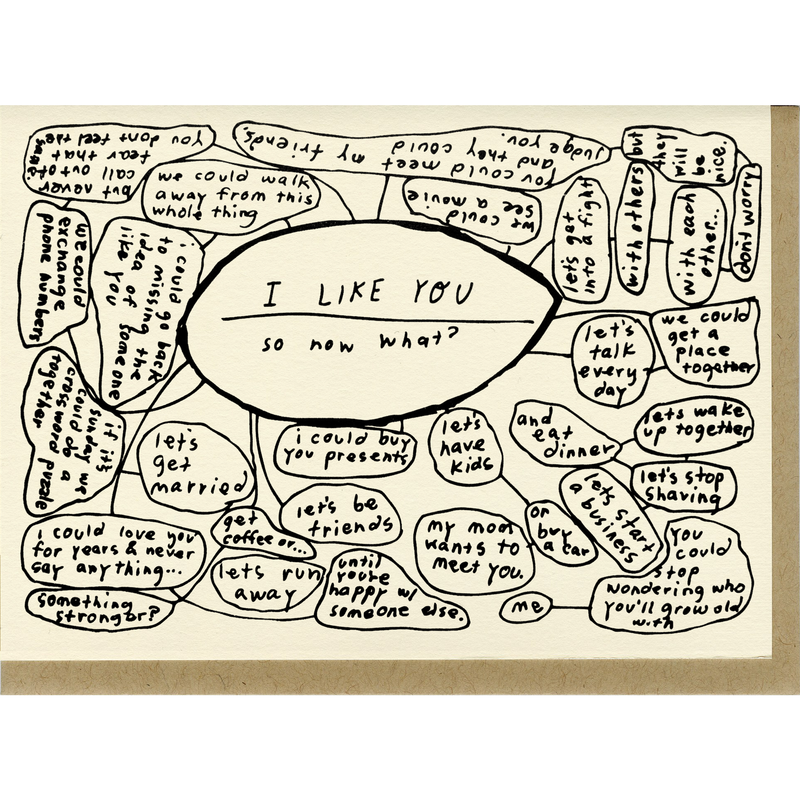 I LIKE YOU
so now what?
we could walk
away from this
whole thing
you
dont feel the
same.
but never
call out of
fear that
you could meet my friends.
and they could
judge you.
but
they
will
be
nice.
don't worry
with each
other...
with others
let's get
into a fight
we could
see a movie
we could
exchange
phone numbers
i could go back
to missing the
idea of someone
like you
if it's
sunday we
could do a
crossword puzzle
together
let's
talk
every
day
we could
get a
place
together
let's
get
married
i could buy
you presents
let's
have
kids
and
eat
dinner
let's wake
up together
let's stop
shaving
let's start
a business
or
buy
a car
let's be
friends
get
coffee or...
my mom
wants to
meet you.
i could love you
for years & never
say anything...
something
stronger?
let's run
away
until
you're
happy w/
someone else.
me
you
could
stop
wondering who
you'll grow old
with